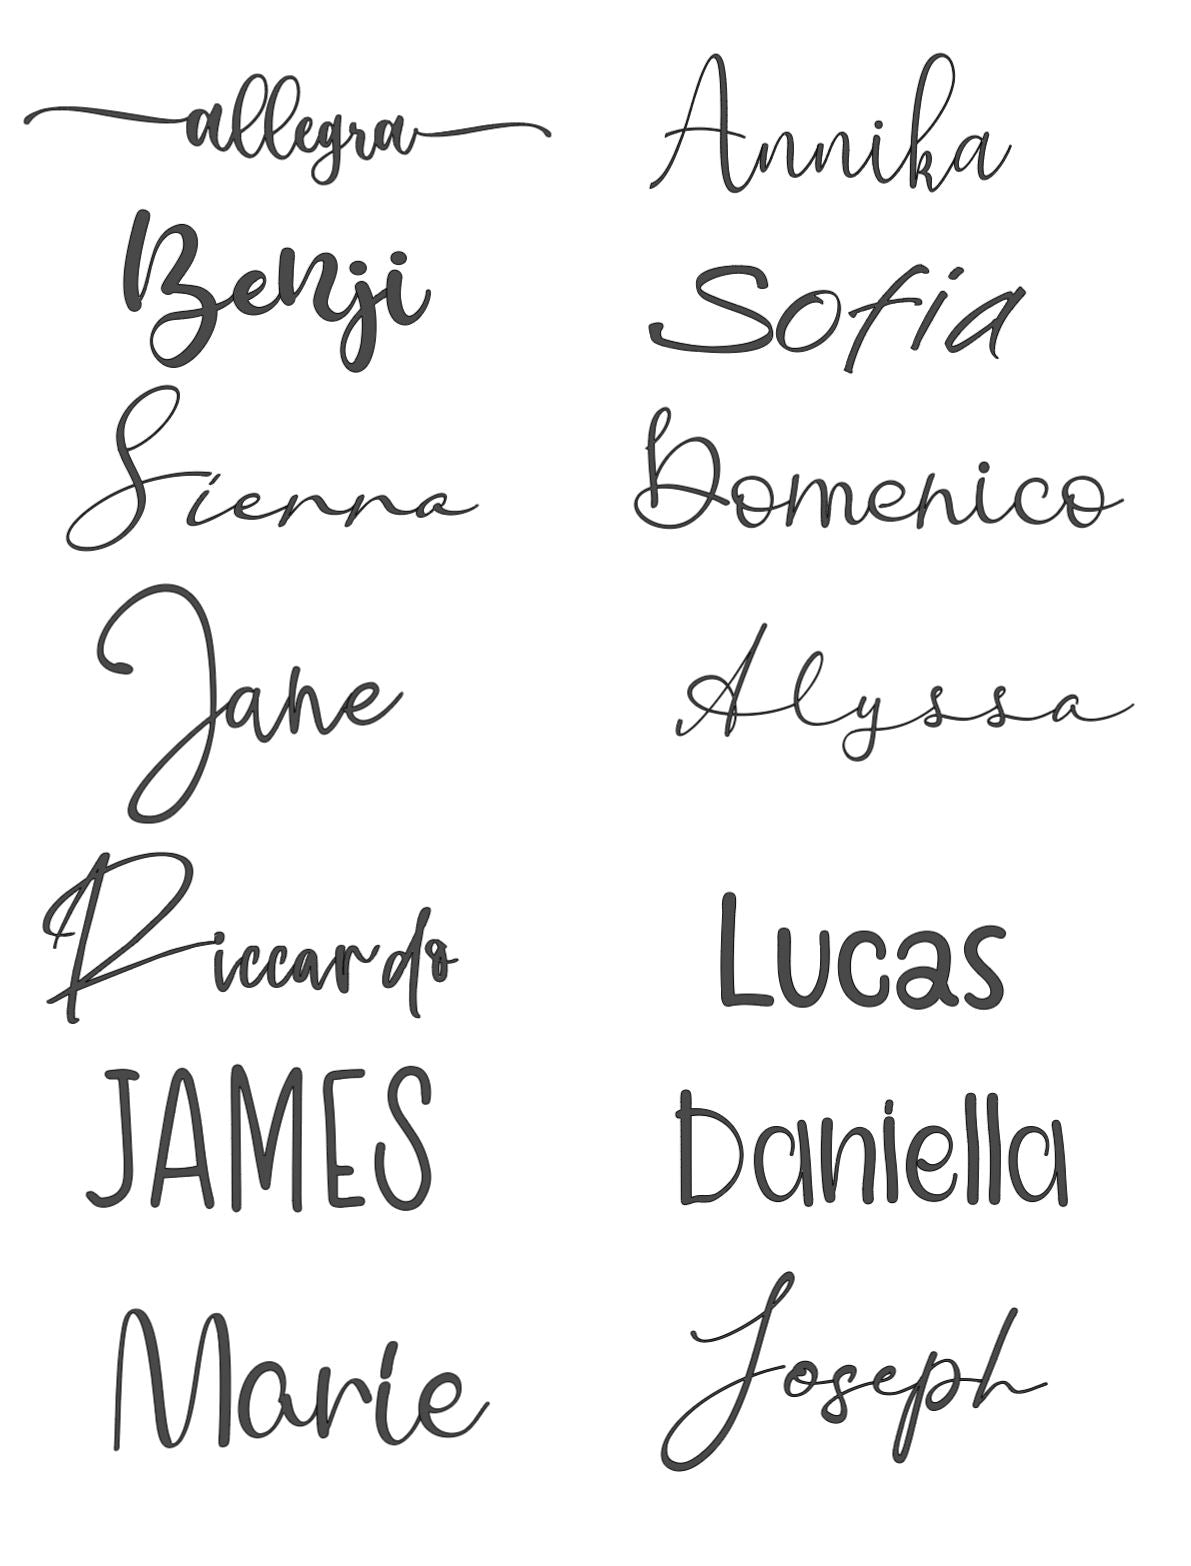 allegra
Annika
Benji
Sofia
Sienna
Domenico
Jane
Alyssa
Riccardo
Lucas
JAMES
Daniella
Marie
Joseph